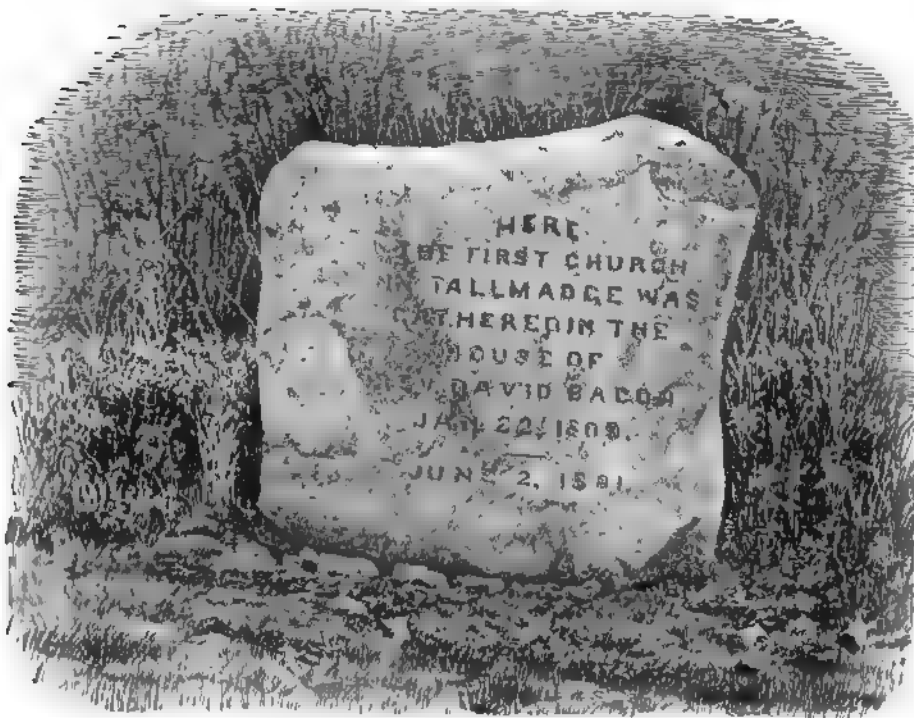 HERE
THE FIRST CHURCH
TALLMADGE WAS
GATHERED IN THE
HOUSE OF
REV. DAVID BACON
JAN. 22, 1809.
JUNE 2, 1881